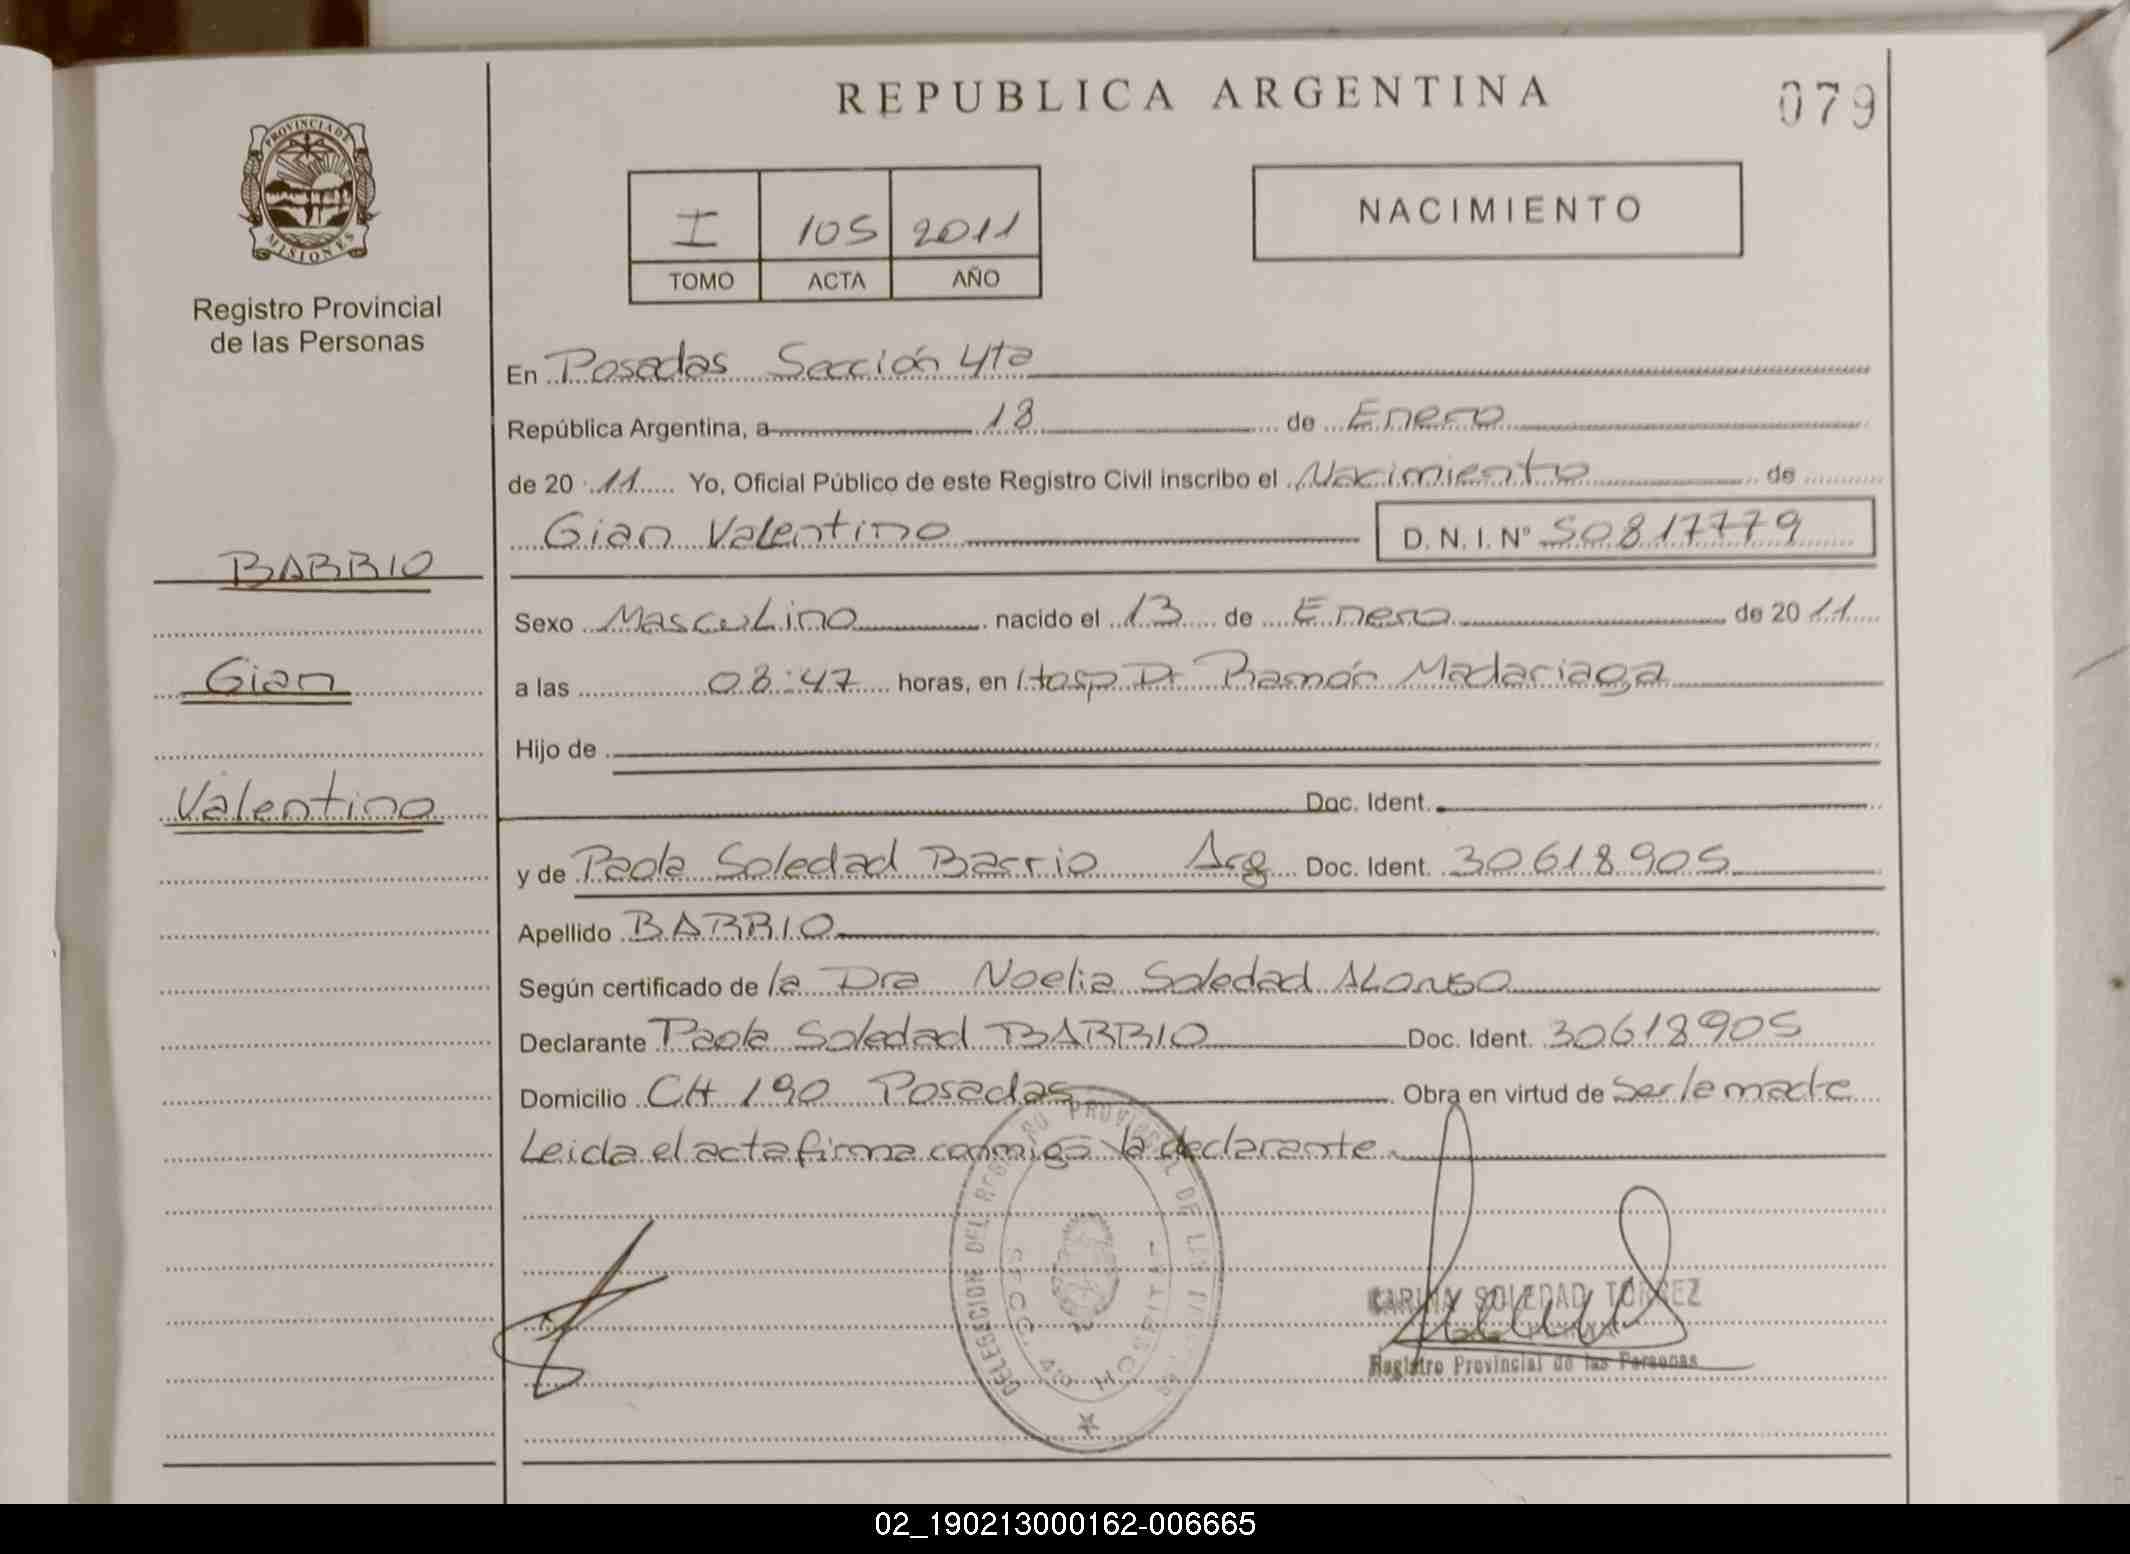 REPUBLICA ARGENTINA
079
PROVINCIA DE
MISIONES
Registro Provincial
de las Personas
I 105 2011
TOMO ACTA AÑO
NACIMIENTO
En Posadas Sección 4ta
República Argentina, a 18 de Enero
de 20 11 Yo, Oficial Público de este Registro Civil inscribo el Nacimiento de
Gian Valentino D. N. I. Nº 50817779
BARRIO
Gian
Valentino
Sexo Masculino nacido el 13 de Enero de 20 11
a las 08:47 horas, en Hosp Dr Ramón Madariaga
Hijo de
Doc. Ident.
y de Paola Soledad Barrio Arg Doc. Ident. 30618905
Apellido BARRIO
Según certificado de la Dra Noelia Soledad ALONSO
Declarante Paola Soledad BARRIO Doc. Ident. 30618905
Domicilio CH 190 Posadas Obra en virtud de ser la madre
Leida el acta firma conmigo la declarante.
DELEGACION DEL REGISTRO PROVINCIAL DE LAS
SECC. 4ta HOSPITAL
KARINA SOLEDAD TORREZ
Registro Provincial de las Personas
02_190213000162-006665